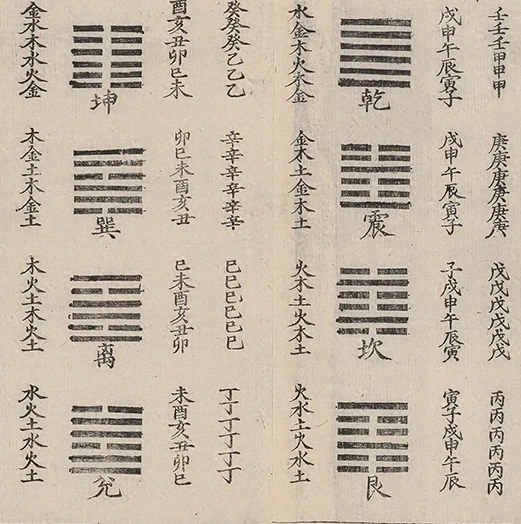 壬壬壬甲甲甲
戌申午辰寅子
乾
水金木火木金
癸癸癸乙乙乙
酉亥丑卯巳未
坤
金水木水火金
庚庚庚庚庚庚
戌申午辰寅子
震
金木土金木土
辛辛辛辛辛辛
卯巳未酉亥丑
巽
木金土木金土
戊戊戊戊戊戊
子戌申午辰寅
坎
火木土火木土
己己己己己己
巳未酉亥丑卯
离
木火土木火土
丙丙丙丙丙丙
寅子戌申午辰
艮
火水土火水土
丁丁丁丁丁丁
未酉亥丑卯巳
兊
水火土水火土